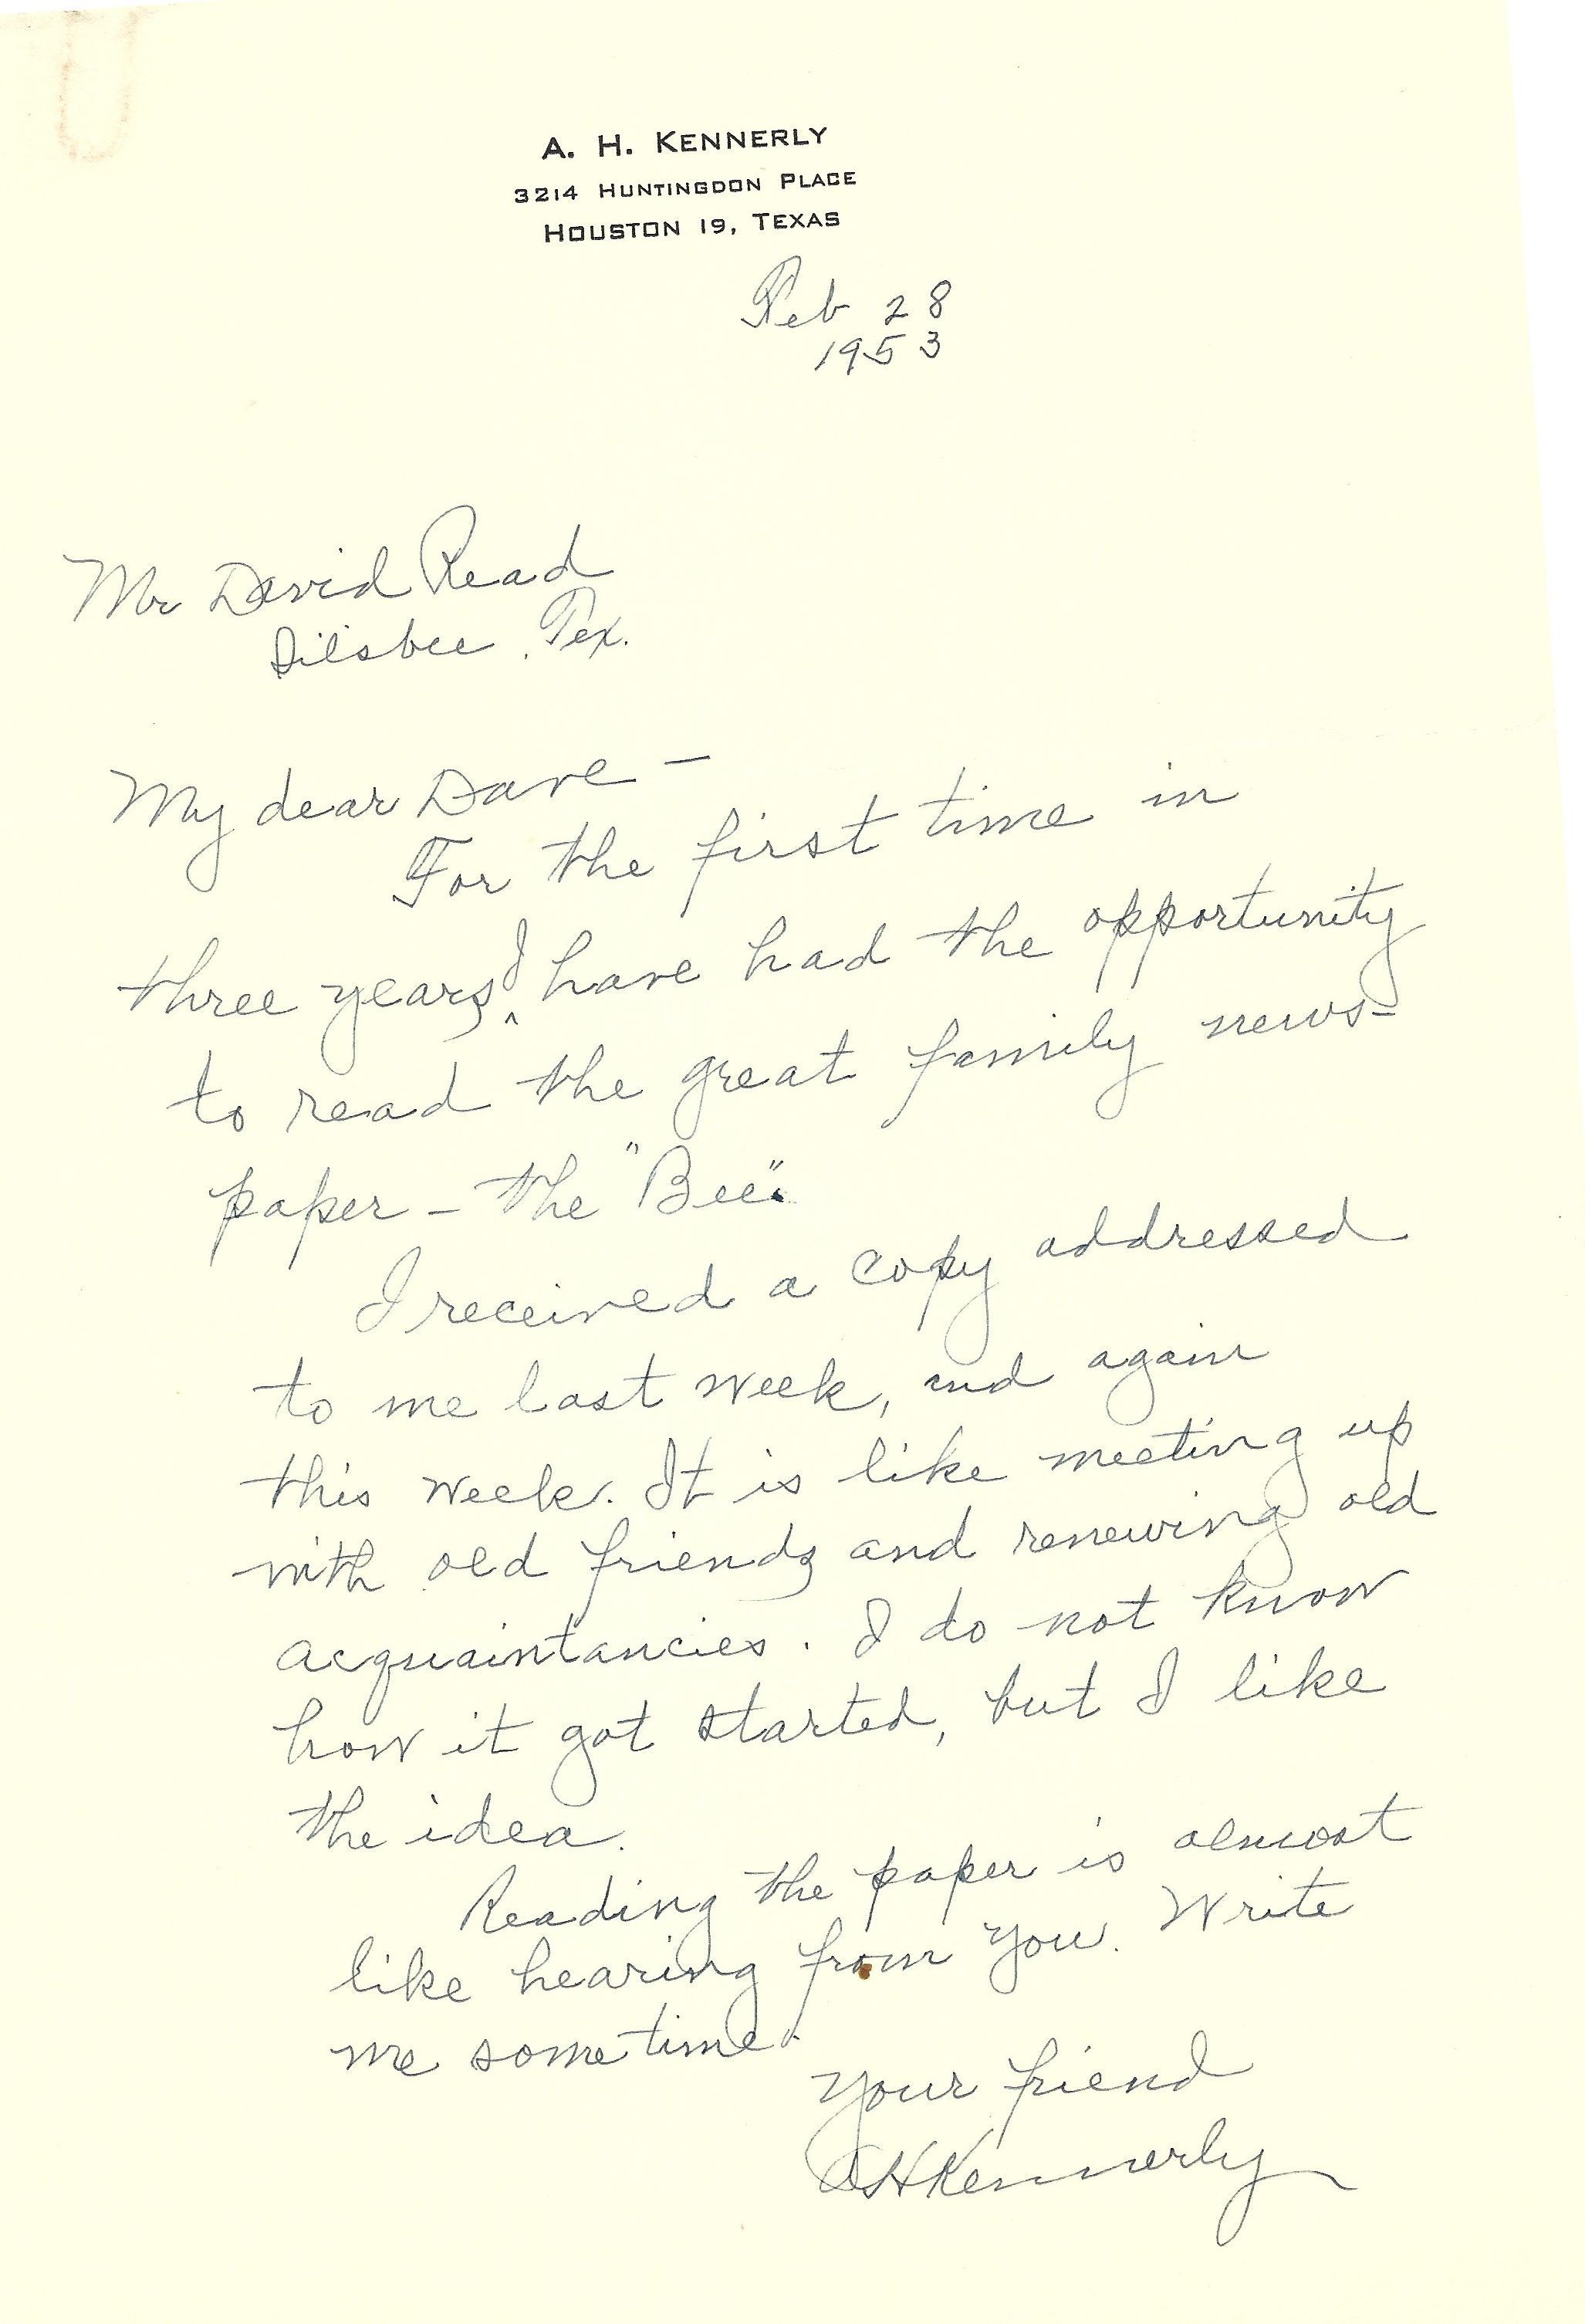 A. H. KENNERLY
3214 HUNTINGDON PLACE
HOUSTON 19, TEXAS
Feb 28
1953
Mr David Read
Silsbee, Tex.
My dear Dave –
For the first time in
three years I have had the opportunity
to read the great family news-
paper – the "Bee".
I received a copy addressed
to me last week, and again
this week. It is like meeting up
with old friends and renewing old
acquaintancies. I do not know
how it got started, but I like
the idea.
Reading the paper is almost
like hearing from you. Write
me sometime.
Your friend
AHKennerly